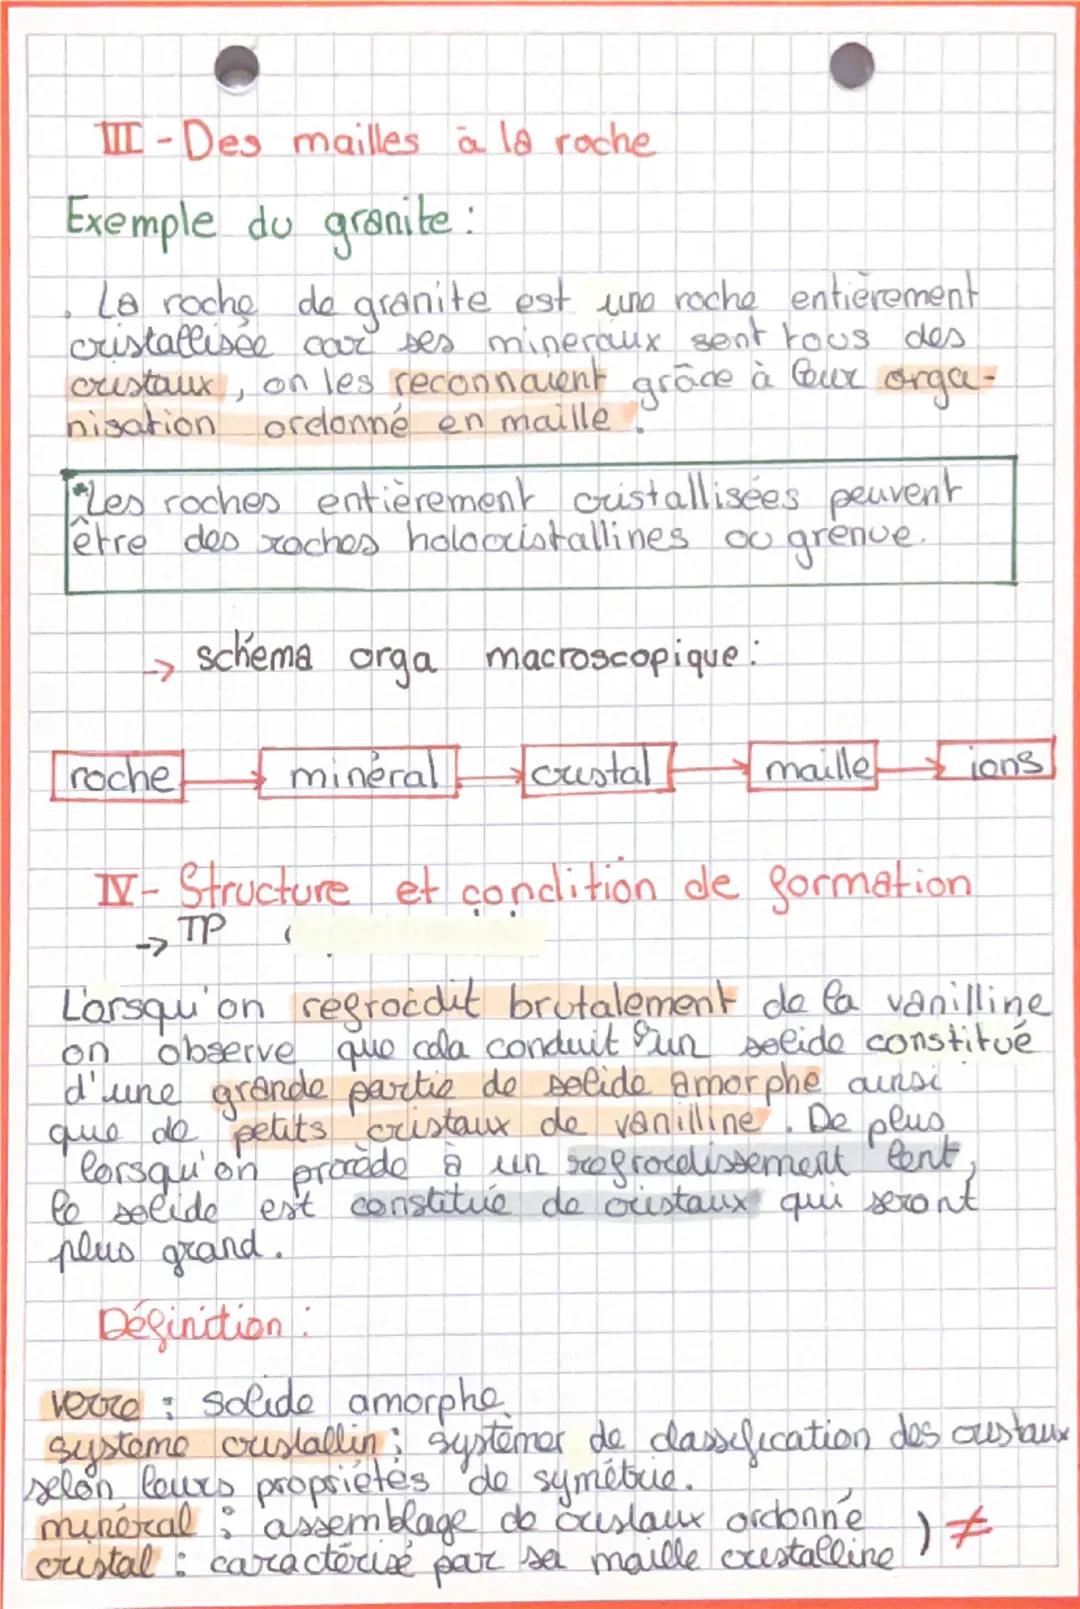 III - Des mailles à la roche
Exemple du granite :
. La roche de granite est une roche entièrement
cristallisée car ses mineraux sont tous des
cristaux, on les reconnaient grâce à leur orga-
nisation ordonné en maille.
*Les roches entièrement cristallisées peuvent
être des roches holocristallines ou grenue.
→ schéma orga macroscopique :
roche → minéral → cristal → maille → ions
IV - Structure et condition de formation
→ TP (
Lorsqu'on refroidit brutalement de la vanilline
on observe que cela conduit à un solide constitué
d'une grande partie de solide amorphe ainsi
que de petits cristaux de vanilline. De plus
lorsqu'on procède à un refroidissement lent,
le solide est constitué de cristaux qui seront
plus grand.
Définition :
verre : solide amorphe
système cristallin : système de classification des cristaux
selon leurs propriétés de symétrie.
minéral : assemblage de cristaux ordonné
cristal : caractérisé par sa maille cristalline ) ≠